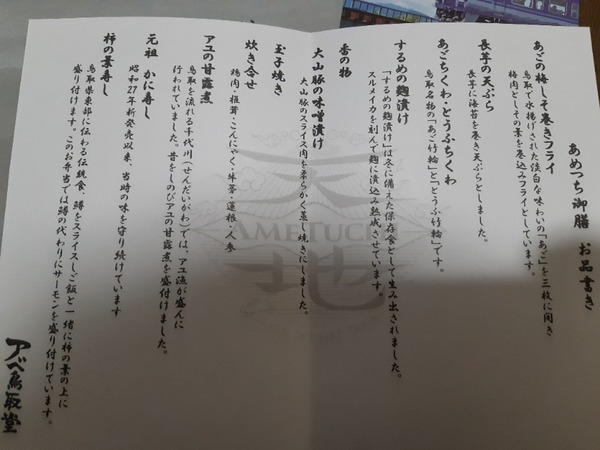 あめつち御膳　お品書き
あごの梅しそ巻きフライ
鳥取で水揚げされた淡白な味わいの「あご」を三枚に開き
梅肉としその葉を巻込みフライとしています。
長芋の天ぷら
長芋に海苔を巻き天ぷらとしました。
あごちくわ・とうふちくわ
鳥取名物の「あご竹輪」と「とうふ竹輪」です。
するめの麹漬け
「するめの麹漬け」は冬に備えた保存食として生み出されました。
スルメイカを刻んで麹に漬込み熟成させています。
香の物
大山豚の味噌漬け
大山豚のスライス肉を柔らかく蒸し焼きにしました。
玉子焼き
炊き合せ
鶏肉・椎茸・こんにゃく・牛蒡・蓮根・人参
アユの甘露煮
鳥取を流れる千代川(せんだいがわ)では、アユ漁が盛んに
行われていました。昔をしのびアユの甘露煮を盛付けました。
元祖　かに寿し
昭和27年新発売以来、当時の味を守り続けています
柿の葉寿し
鳥取県東部に伝わる伝統食、鱒をスライスしご飯と一緒に柿の葉の上に
盛り付けます。このお弁当では鱒の代わりにサーモンを盛り付けています。
アベ鳥取堂
天
AMETUCHI
地